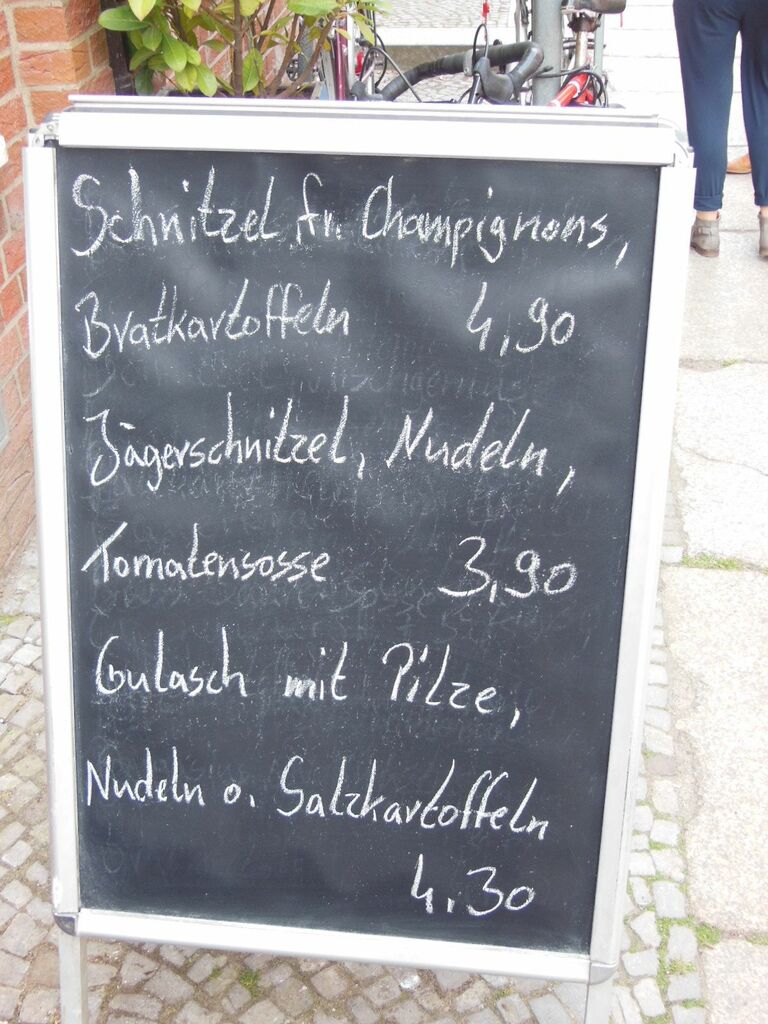 Schnitzel, fr. Champignons,
Bratkartoffeln 4,90
Jägerschnitzel, Nudeln,
Tomatensosse 3,90
Gulasch mit Pilze,
Nudeln o. Salzkartoffeln
4,30